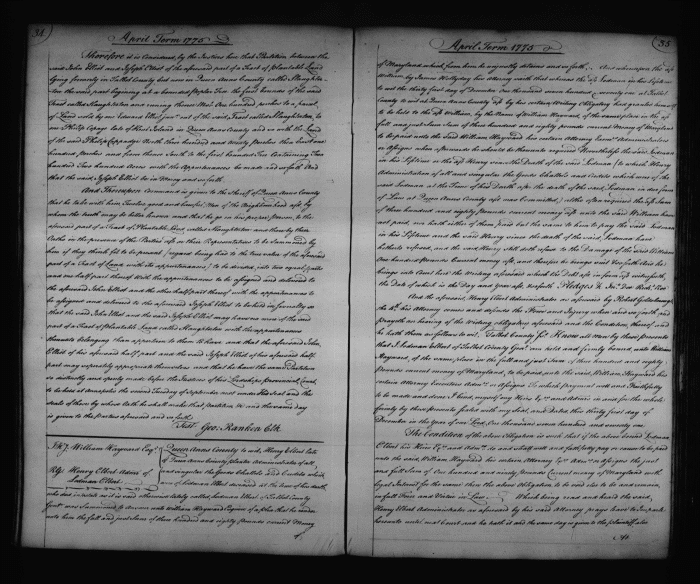 34.
April Term 1775
Therefore it is Considered by the Justices here that Partition between the
said John Elliot and Joseph Elliot of the aforesaid part of a Tract of Plantable Land
lying formerly in Talbot County but now in Queen Anns County called Slaughter
ton the said, part beginning at a bounded Poplar Tree the first bounder of the said
Tract called Slaughterton and running thence West One hundred perches to a parcel
of Land sold by one Edward Elliot out of the said Tract called Slaughterton, to
one Philip Copage late of Kent Island in Queen Anns County and so with the Land
of the said Philip Coppadge North Two hundred and Ninety Perches then East one
hundred Perches and from thence South to the first bounded Tree Containing Two
hundred Acres with the Appurtenances be made and so forth And
that the said Joseph Elliot be in Mercy and so forth
And Thereupon Command is given to the Sheriff of Queen Anns County
that he take with him Twelve good and lawful Men of the Neighbourhood by
whom the truth may be better known and that he go in his proper person to the
aforesaid part of a Tract of Plantable Land called Slaughterton and there by their
Oaths in the presence of the Parties or their Representatives to be Summoned by
him if they think fit to be present (regard being had to the true value of the aforesaid
part of a Tract of Land with the appurtenances) to be divided into two equal parts
and one half part thereof With the Appurtenances to be assigned and delivered to
the aforesaid John Elliot and the other half part thereof with the appurtenances to
be assigned and delivered to the aforesaid Joseph Elliot to be held in severalty so
that the said John Elliot and the said Joseph Elliot may have no more of the said
part of a Tract of Plantable Land called Slaughterton with the appurtenances
thereunto belonging than appertain to them to have and that the aforesaid John
Elliot of his aforesaid half part and the said Joseph Elliot of his aforesaid half
part may separately appropriate themselves and that he have the same Partition
so distinctly and openly made before the Justices of his Lordships Provincial Court
to be held at Annapolis the second Tuesday of September next under His Seal and the
Seals of them by whose Oath he shall make that partition & the same day
is given to the Parties aforesaid and so forth
Test Geo: Ranken Clk
William Hayward Esqr
Henry Elbert Admr of
Lodman Elbert
Queen Anns County to wit, Henry Elbert late
of Queen Anns County Administrator of all
and singular the Goods Chattels and Credits which
were of Lodman Elbert deceased at the time of his death
who died intestate as it is said otherwise lately called Lodman Elbert of Talbot County
Gent was Summoned to Answer unto William Hayward Esquire of a plea that he render
unto him the full and just Sum of three hundred and eighty Pounds current Money
of
35
April Term 1775
of Maryland which from him he unjustly detains and so forth. And whereupon the
William by James his Attorney saith that whereas the said Lodman in his lifetime
to wit the thirty first day of December One thousand seven hundred seventy one at Talbot
County to wit at Queen Anns County by his certain Writing Obligatory had granted himself
to be held to the said William by the Name of William Hayward of the same place in the
full and just Sum of three hundred and eighty Pounds current Money of Maryland
to be paid unto the said William Hayward his certain Attorney Executors Administrators
or Assigns when afterwards he should be thereunto required Nevertheless the said Lodman
in his lifetime or the said Henry since the Death of the said Lodman to which Henry
Administration of all and singular the Goods Chattels and Credits which were of the
said Lodman at the Time of his Death after the death of the said Lodman in due form
of Law at Queen Anns County was Committed altho often required the Sum
of three hundred and eighty Pounds current money unto the said William have
not paid nor hath either of them paid but the same to him to pay the said Lodman
in his lifetime and the said Henry since the death of the said Lodman have
hitherto refused, and the said Henry still doth refuse to the Damage of the said William
One hundred Pounds Current money and thereof he brings suit & so forth And he
brings into Court here the Writing aforesaid which the Debt in form witnesseth
the Date of which is the Day and Year so forth Pledges & Jno. Doe Richd Roe
And the aforesaid Henry Elbert Administrator as aforesaid by Robert Goldsborough
the 4th his Attorney comes and defends the Force and Injury when and so forth and
prayeth an hearing of the Writing obligatory aforesaid and the Condition thereof and
he hath them as follows to wit Talbot County Know all men by these presents
that I Lodman Elbert of Talbot County Gent am held and firmly bound unto William
Hayward of the same place in the full and just Sum of three hundred and eighty
Pounds current money of Maryland, to be paid unto the said William Hayward his
certain Attorney Executors Admrs or Assigns To which payment well and Faithfully
to be made and done I bind myself my Heirs Exrs and Admrs in and for the whole
firmly by these presents Sealed with my Seal and Dated this thirty first day of
December in the Year of our Lord One thousand seven hundred and seventy one
The Condition of the above Obligation is such that if the above bound Lodman
Elbert his Heirs Exrs and Admrs do and shall well and faithfully pay or cause to be paid
unto the said William Hayward his certain Attorney Exrs Admrs or Assigns the just
and full Sum of One hundred and ninety Pounds Current Money of Maryland with
legal Interest for the same then the above Obligation to be void else to be and remain
in full Force and Virtue in Law Which being read and heard the said
Henry Elbert Administrator as aforesaid by his said Attorney prays leave to Imparle
hereunto until next Court and he hath it and the same day is given to the plaintiff also